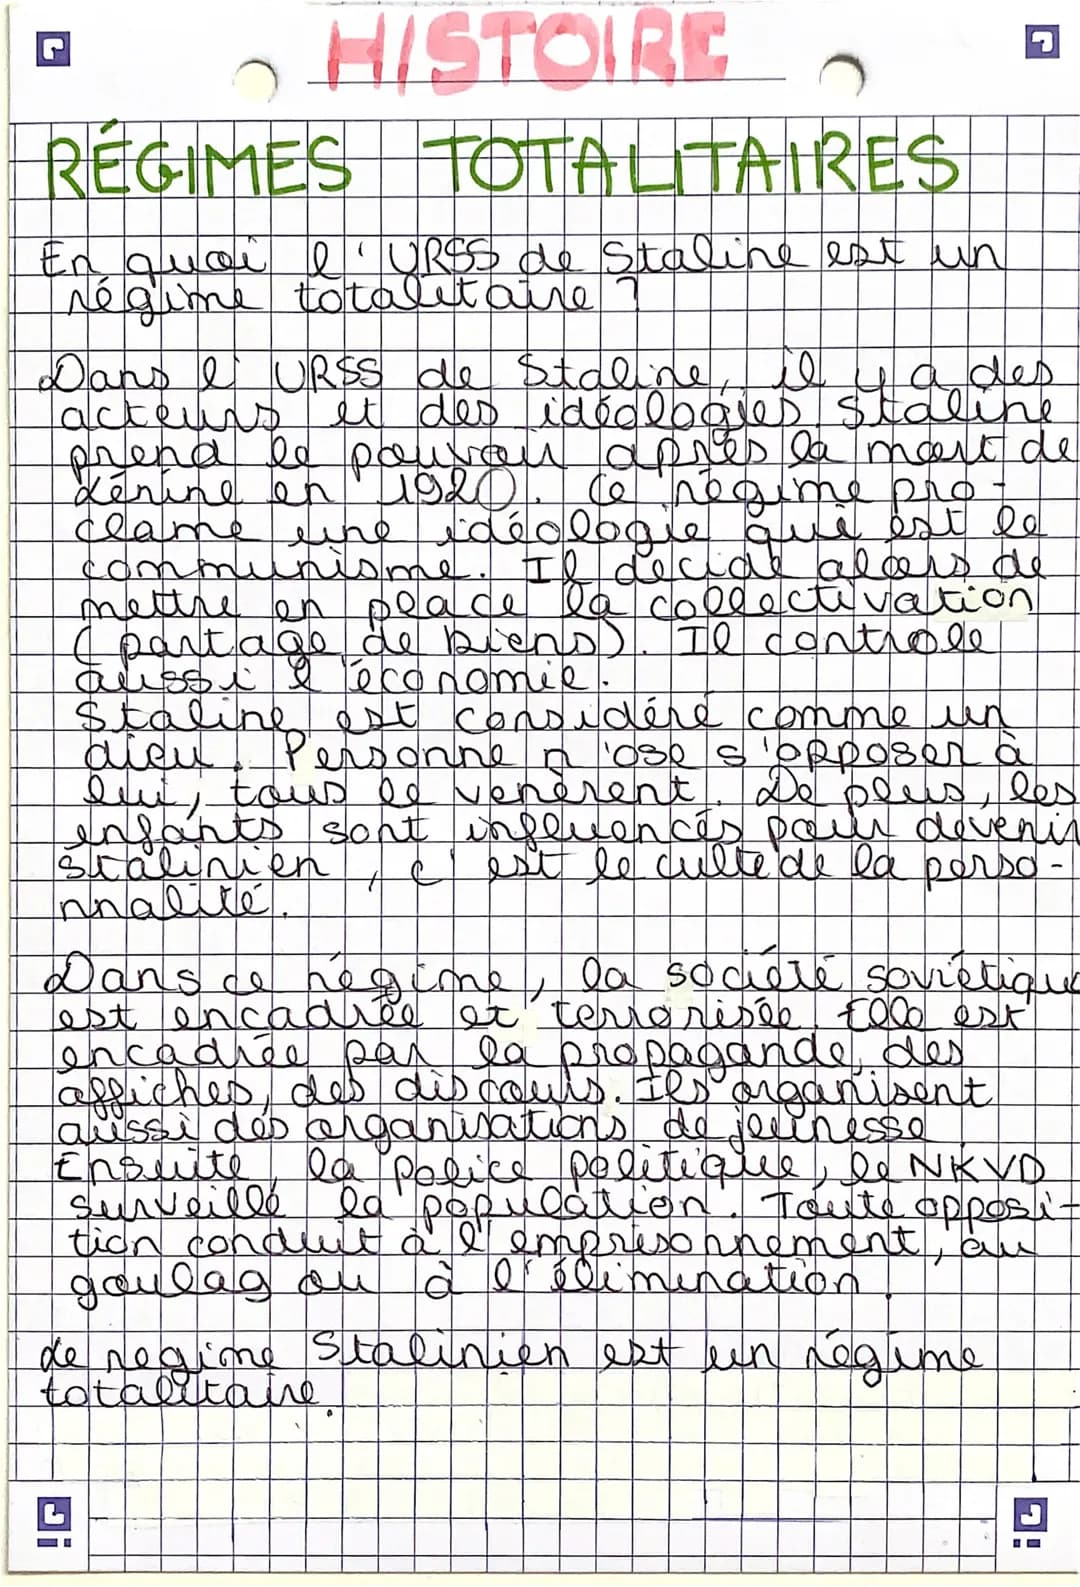 HISTOIRE
RÉGIMES TOTALITAIRES
En quoi l'URSS de Staline est un
régime totalitaire ?
Dans l'URSS de Staline, il y a des
acteurs et des idéologies. Staline
prend le pouvoir après la mort de
Lénine en 1920. Ce régime pro-
clame une idéologie qui est le
communisme. Il decide alors de
mettre en place la collectivation
(partage de biens). Il controle
aussi l'économie.
Staline est considéré comme un
dieu. Personne n'ose s'opposer à
lui, tous le venèrent. De plus, les
enfants sont influencés pour devenir
stalinien, c'est le culte de la perso-
nnalité.
Dans ce régime, la société soviétique
est encadrée et terrorisée. Elle est
encadrée par la propagande, des
affiches, des discours. Ils organisent
aussi des organisations de jeunesse
Ensuite, la police politique, le NKVD
surveille la population. Toute opposi-
tion conduit à l'emprisonnement, au
goulag ou à l'élimination.
Le regime Stalinien est un régime
totalitaire.